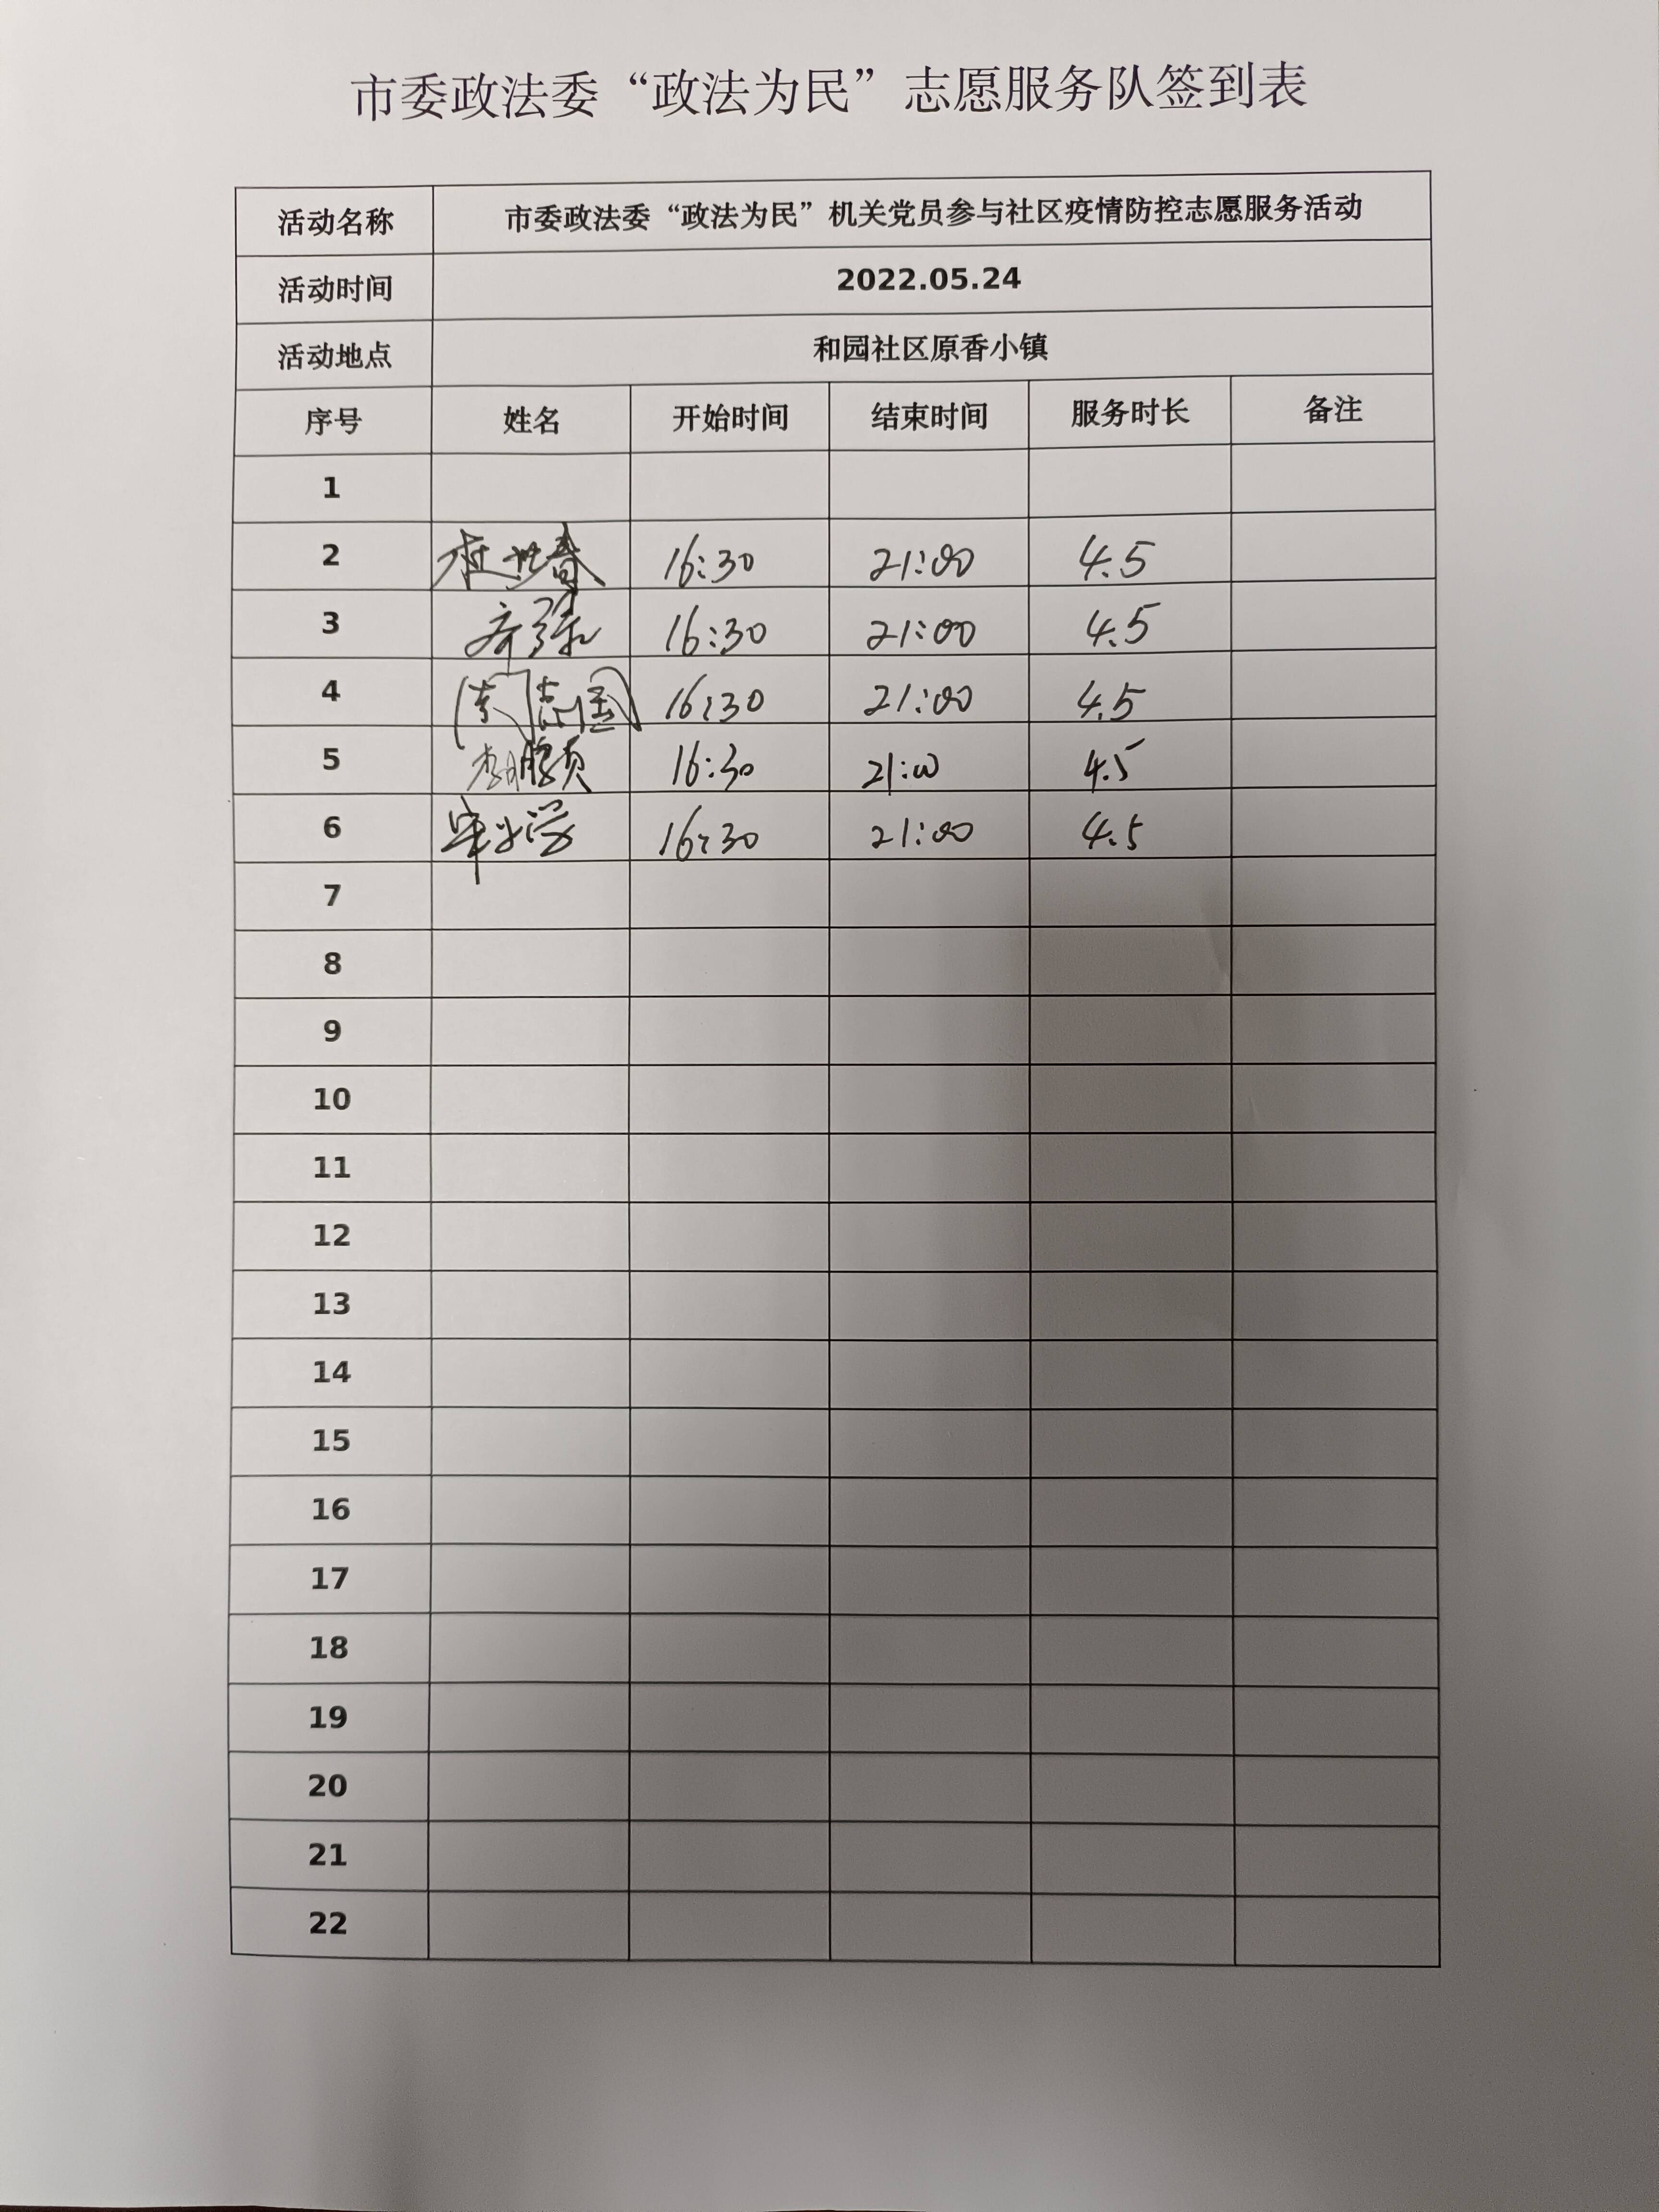 市委政法委“政法为民”志愿服务队签到表
活动名称 市委政法委“政法为民”机关党员参与社区疫情防控志愿服务活动
活动时间 2022.05.24
活动地点 和园社区原香小镇
序号 姓名 开始时间 结束时间 服务时长 备注
1
2 16:30 21:00 4.5
3 齐强 16:30 21:00 4.5
4 志国 16:30 21:00 4.5
5 16:30 21:00 4.5
6 16:30 21:00 4.5
7
8
9
10
11
12
13
14
15
16
17
18
19
20
21
22